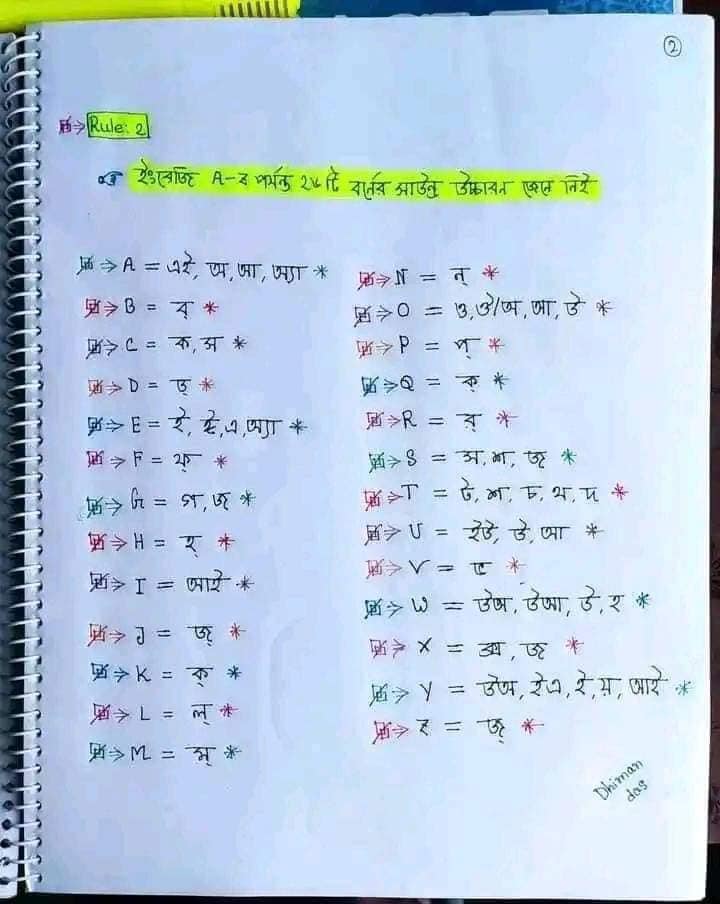 ②
Rule: 2
ইংরেজি A-Z পর্যন্ত ২৬ টি বর্ণের সাউন্ড উচ্চারন জেনে নিই
⇒ A = এই, অ, আ, অ্যা *
⇒ B = ব্ *
⇒ C = ক, স *
⇒ D = ড্ *
⇒ E = ই, ঈ, এ, অ্যা *
⇒ F = ফ্ *
⇒ G = গ, জ *
⇒ H = হ্ *
⇒ I = আই *
⇒ J = জ্ *
⇒ K = ক্ *
⇒ L = ল্ *
⇒ M = ম্ *
⇒ N = ন্ *
⇒ O = ও, ঔ/অ, আ, উ *
⇒ P = প্ *
⇒ Q = ক্ *
⇒ R = র্ *
⇒ S = স, শ, জ *
⇒ T = ট, শ, চ, থ, দ *
⇒ U = ইউ, উ, আ *
⇒ V = ভ *
⇒ W = উঅ, উআ, উ, হ *
⇒ X = ক্স, জ *
⇒ Y = উঅ, ইএ, ই, য়, আই *
⇒ Z = জ্ *
Dhiman
das